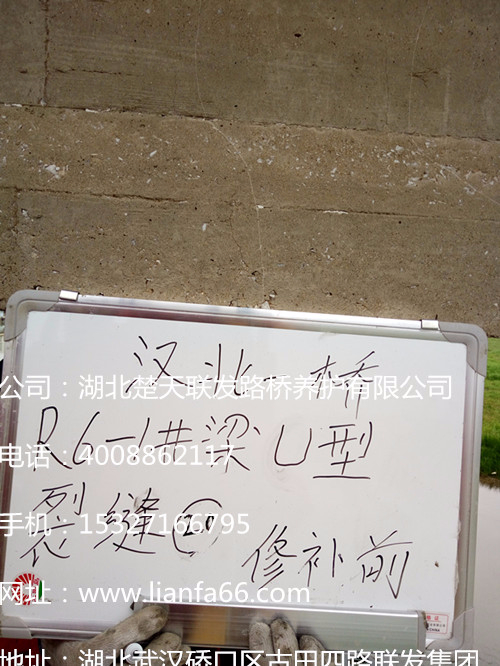 汉北桥
公司：湖北楚天联发路桥养护有限公司
R6-1#梁U型
电话：4008862117
手机：15327166795
裂缝⑳
修补前
网址：www.lianfa66.com
地址：湖北武汉硚口区古田四路联发集团